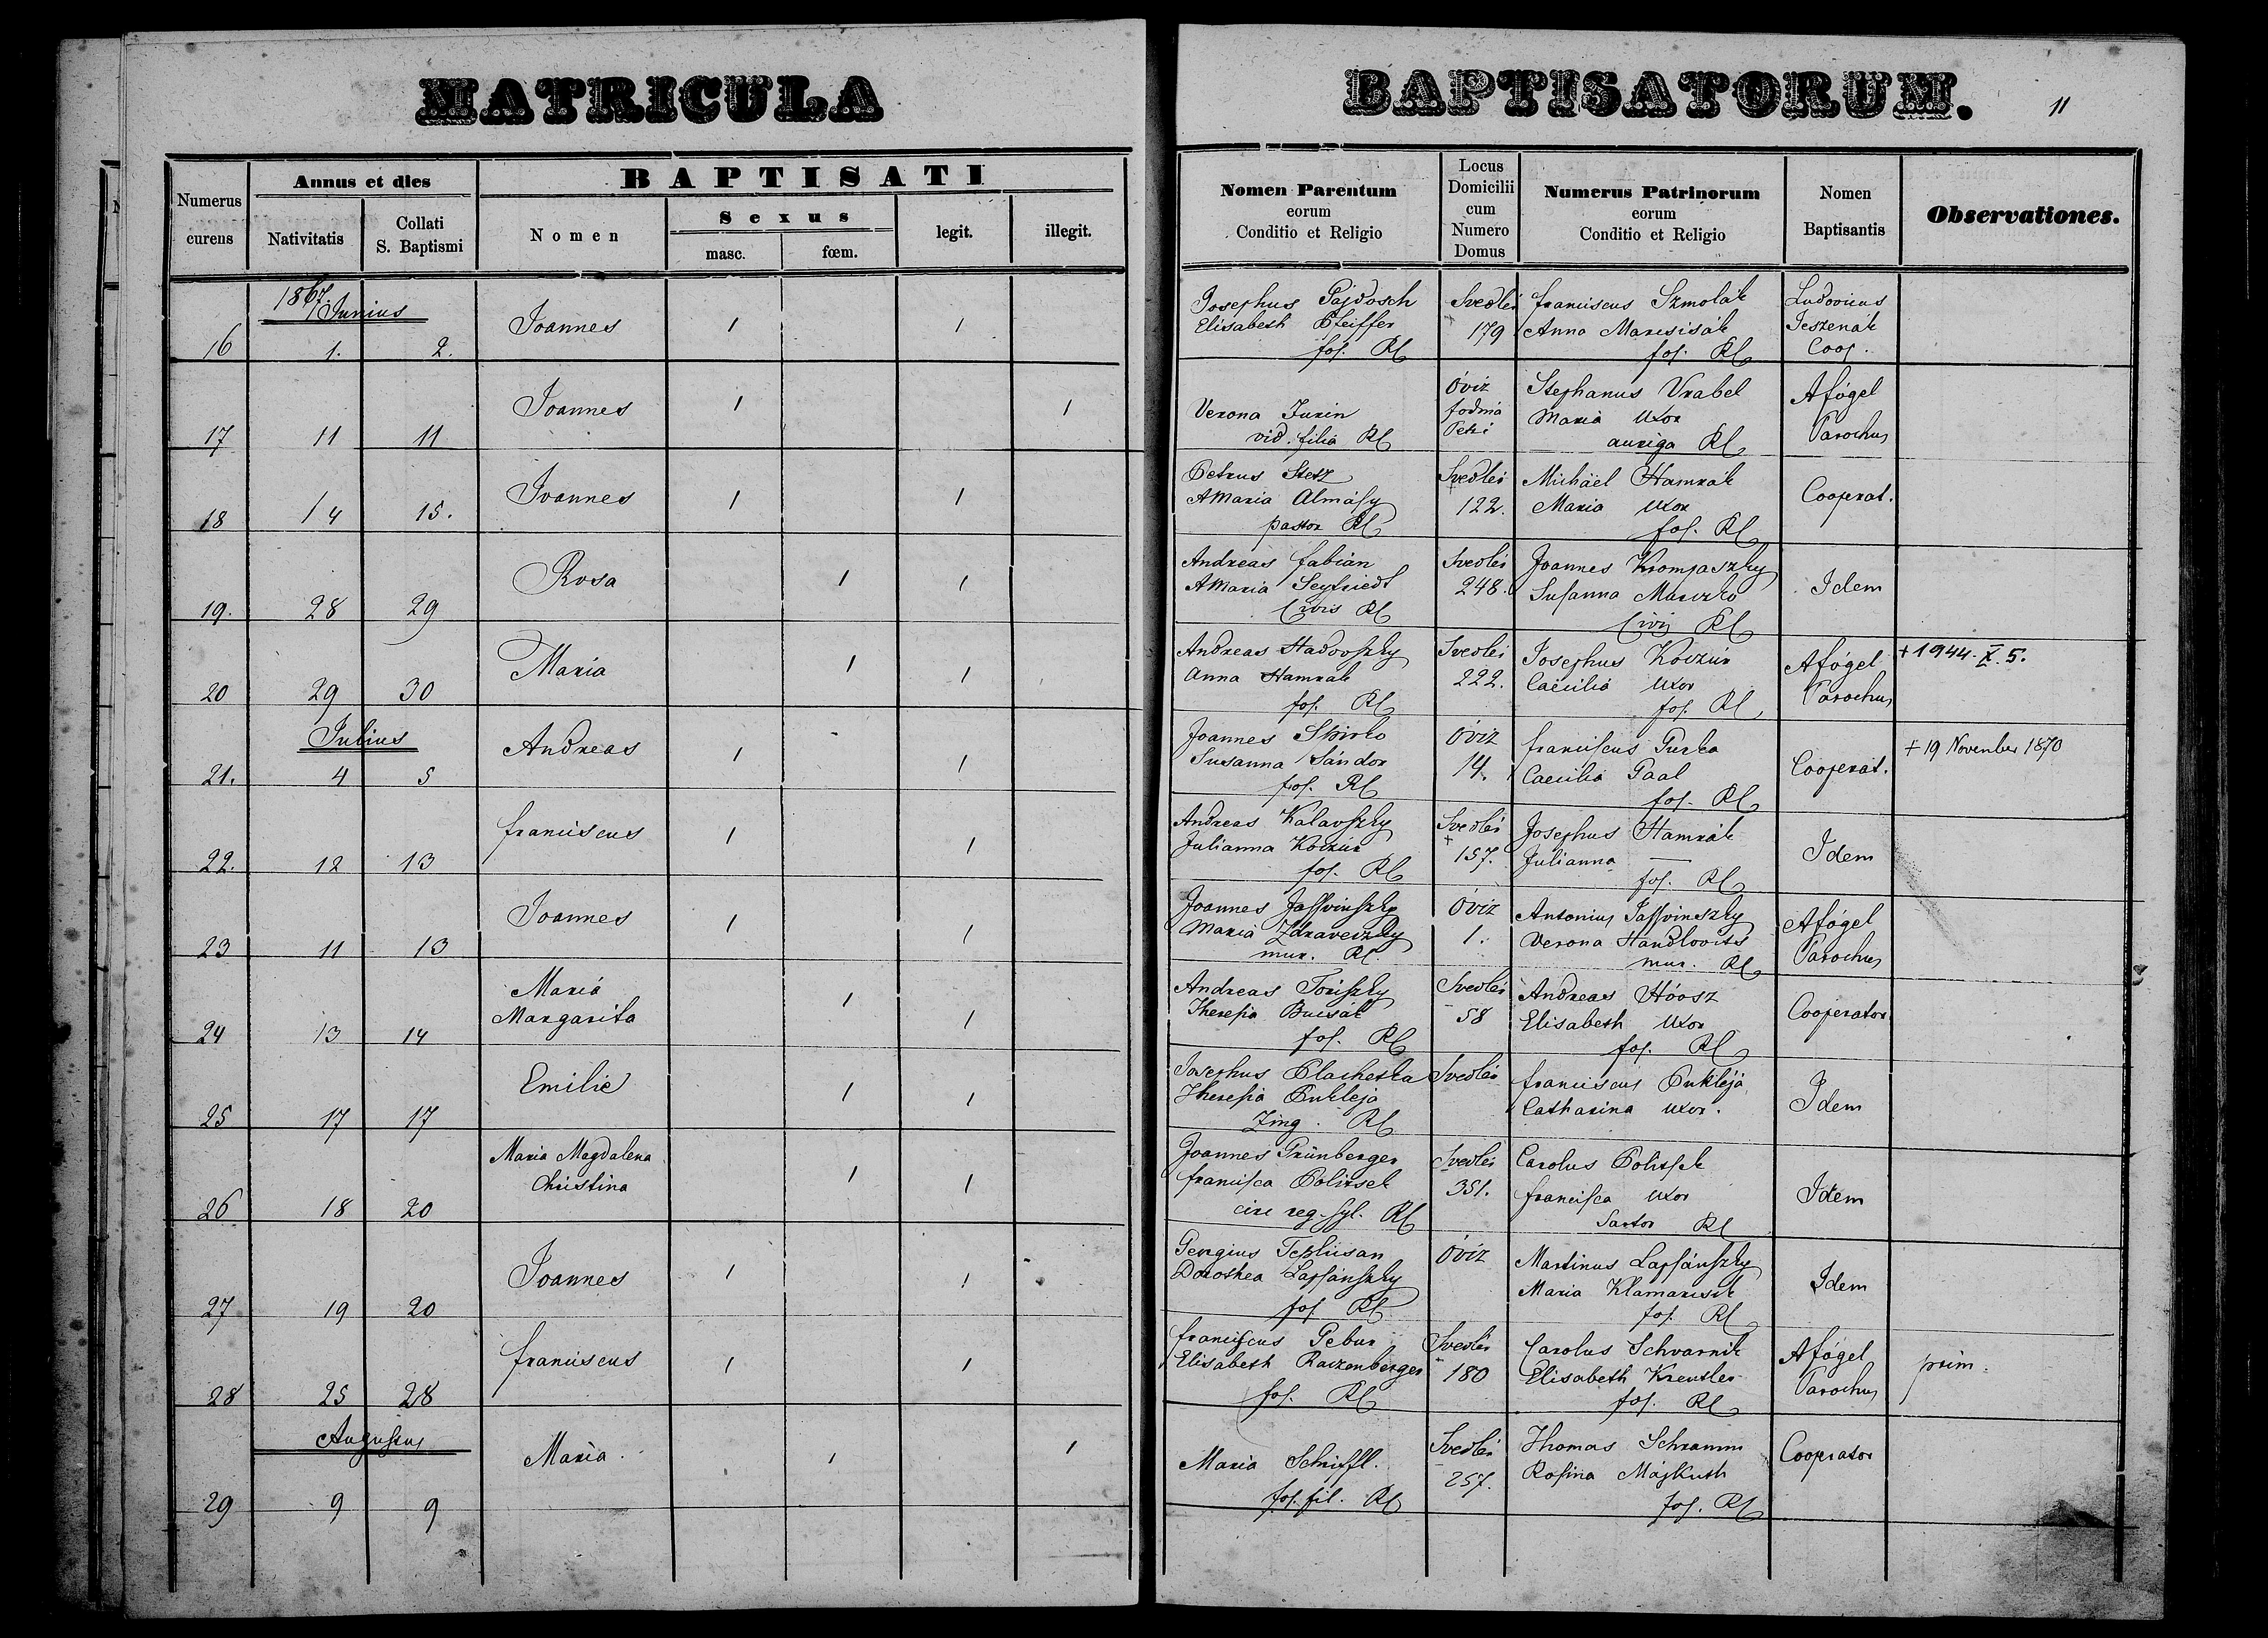 MATRICULA
BAPTISATORUM.
11
Numerus curens
Annus et dies
Nativitatis
Collati S. Baptismi
BAPTISATI
Nomen
Sexus
masc.
fœm.
legit.
illegit.
Nomen Parentum eorum Conditio et Religio
Locus Domicilii cum Numero Domus
Numerus Patrinorum eorum Conditio et Religio
Nomen Baptisantis
Observationes.
1867. Junius
16 1. 2. Joannes 1 1
Josephus Gajdosch Svedlér Franciscus Szmolák Ludovicus
Elisabeth Pfeiffer 179 Anna Jeszenák
fos. RC fos. RC Coop.
17 11 11 Joannes 1 1
Óviz Stephanus Vrabel A fógel
Verona Jurin fodina Maria uxor
vid. filia RC Petri auriga RC Parochus
18 14 15. Joannes 1 1
Petrus Stetz Svedlér Michäel Hamrák
AMaria Almásy 122. Maria uxor Cooperat.
pastor RC fos. RC
19. 28 29 Rosa 1 1
Andreas Fabian Svedlér Joannes Krompaszky
AMaria Seyfriedt 248. Susanna Idem
Civis RC Civis RC
20 29 30 Maria 1 1
Andreas Hadovszky Svedlér Josephus Koczúr A fógel + 1944. X. 5.
Anna Hamrak 222. Caecilia uxor
fos. RC fos. RC Parochus
Julius
21. 4 5 Andreas 1 1
Joannes Óviz Franciscus + 19 November 1870
Susanna Sándor 14. Caecilia Gaal Cooperat.
fos. RC fos. RC
22. 12 13 Franciscus 1 1
Andreas Kalavszky Svedlér Josephus Hamrák
Julianna Koczúr + 157. Julianna — Idem
fos. RC fos. RC
23 11 13 Joannes 1 1
Joannes Jassvinszky Óviz Antonius Jassvinszky A fógel
Maria Zdraveczky 1. Verona Handlovits
mur. RC. mur. RC Parochus
24 13 14 Maria Margarita 1 1
Andreas Toriszky Svedlér Andreas Hóosz
Theresia 58 Elisabeth uxor Cooperator
fos. RC fos. RC
25 17 17 Emilie 1 1
Josephus Plachetka Svedlér Franciscus Pukleja
Theresia Pukleja Catharina uxor. Idem
Zing. RC
26 18 20 Maria Magdalena Christina 1 1
Joannes Grünberger Svedlér Carolus Politsek
Francisca Politsek 351. Francisca uxor Idem
reg. syl. RC Sartor RC
27 19 20 Joannes 1 1
Georgius Óviz Martinus Lapsánszky
Dorothea Lapsánszky Maria Idem
fos. RC fos. RC
28 25 28 Franciscus 1 1
Franciscus Gebur Svedlér Carolus Schvarnik A fógel prim.
Elisabeth Raczenberger 180 Elisabeth Kreutler
fos. RC fos. RC Parochus
Augustus
29 9 9 Maria. 1 1
Maria Schiffl. Svedlér Thomas Schramm Cooperator
257. Rosina Májkuth
fos. fil. RC fos. RC